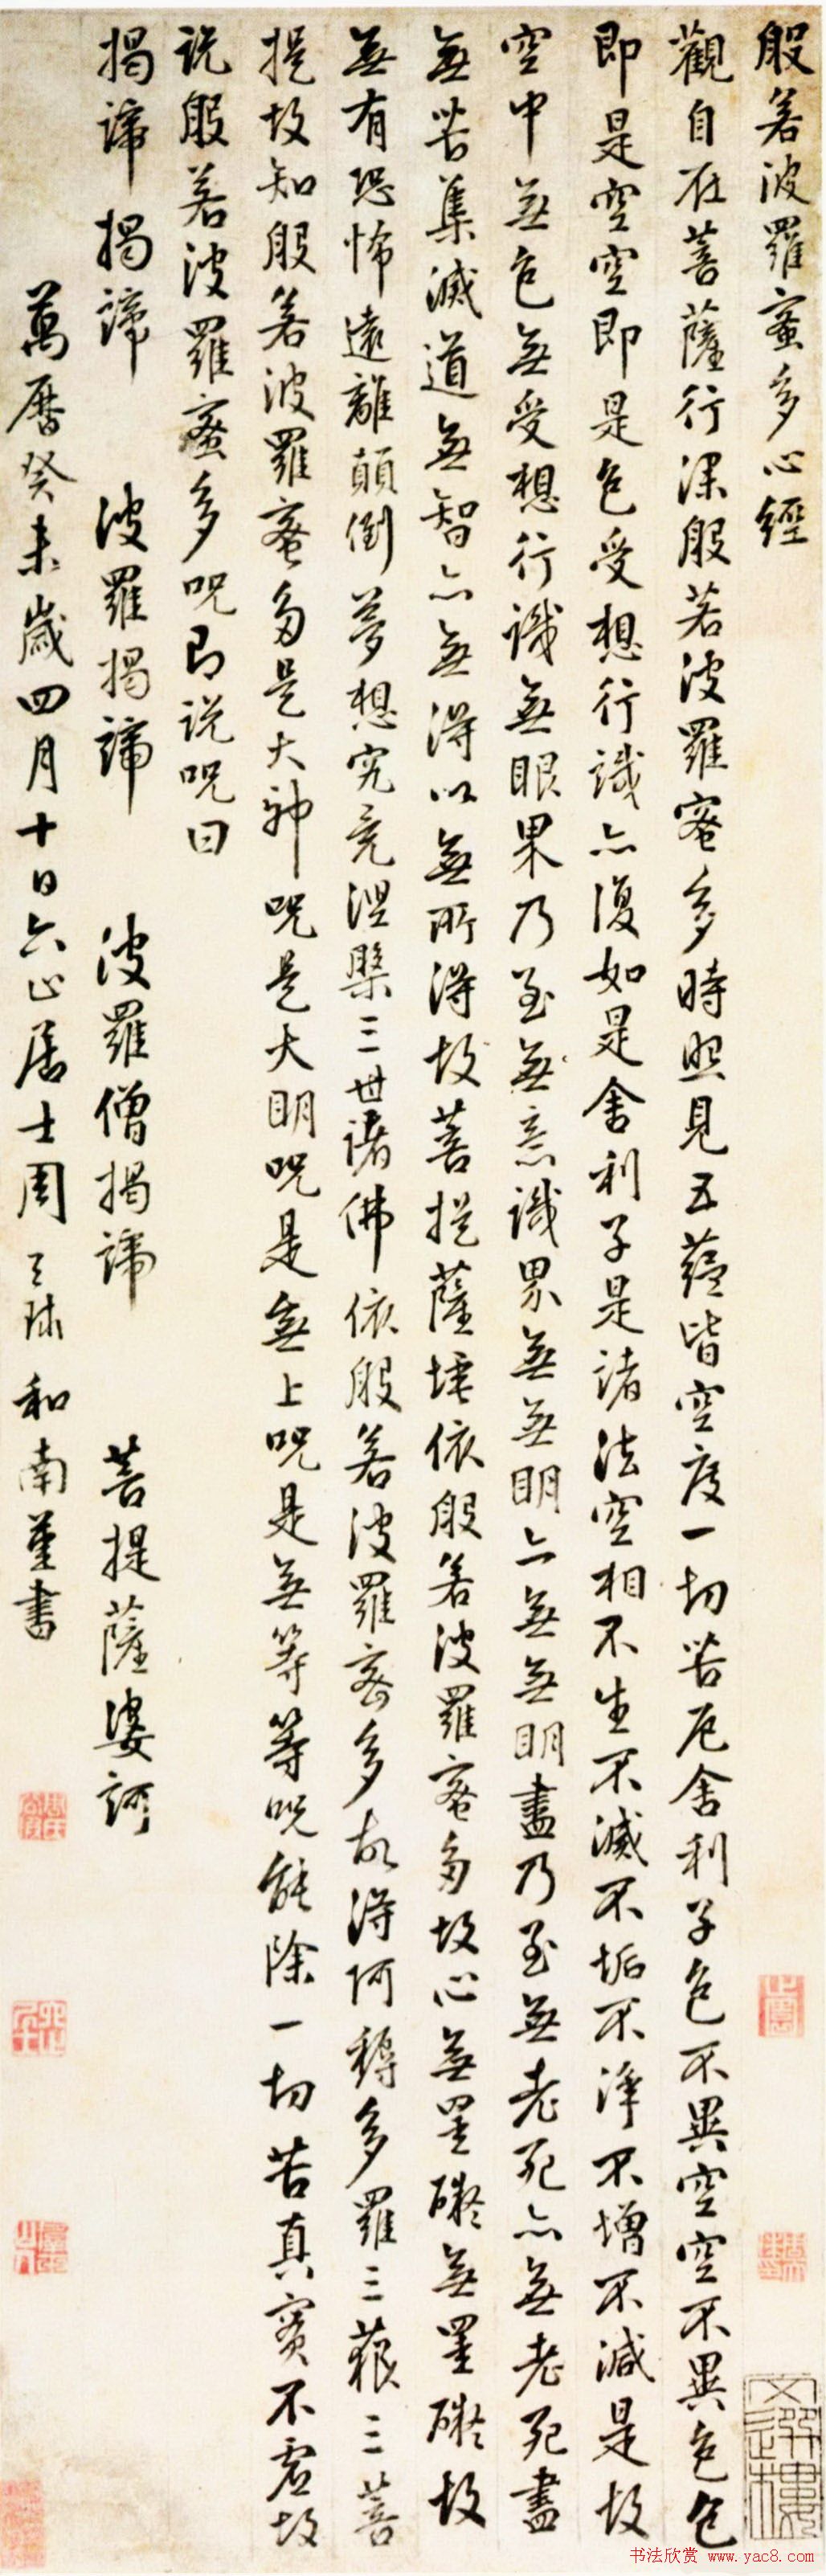 般若波羅蜜多心經
觀自在菩薩行深般若波羅蜜多時照見五蘊皆空度一切苦厄舍利子色不異空空不異色色
即是空空即是色受想行識亦復如是舍利子是諸法空相不生不滅不垢不淨不增不減是故
空中無色無受想行識無眼果乃至無意識界無無明亦無無明盡乃至無老死亦無老死盡
無苦集滅道無智亦無得以無所得故菩提薩埵依般若波羅蜜多故心無罣礙無罣礙故
無有恐怖遠離顛倒夢想究竟涅槃三世諸佛依般若波羅蜜多故得阿耨多羅三藐三菩
提故知般若波羅蜜多是大神呪是大明呪是無上呪是無等等呪能除一切苦真實不虛故
說般若波羅蜜多呪即說呪曰
揭諦揭諦 波羅揭諦 波羅僧揭諦 菩提薩婆訶
萬曆癸未歲四月十日六止居士周天球和南堇書
周氏公瑕
六止居士
文選樓
书法欣赏 www.yac8.com